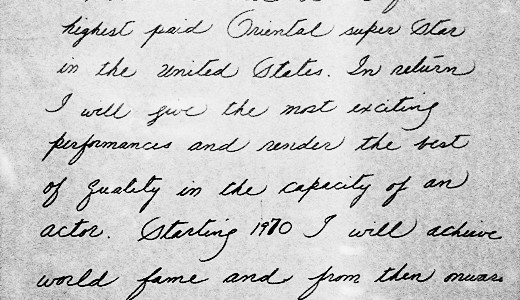 highest paid Oriental super Star
in the United States. In return
I will give the most exciting
performances and render the best
of quality in the capacity of an
actor. Starting 1970 I will achieve
world fame and from then onwar